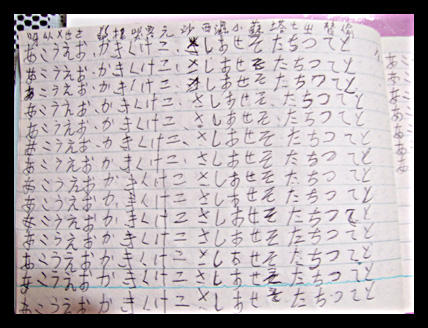 沙西 小蘇塔七出替偷
あこうえお、かきくけこ、さしあせそたちつてと
あこうえお、かきくけこ、さしあせそたちつてと
あこうえお、かきくけこ、さしあせそたちつてと
あこうえお、かきくけこ、さしあせそたちつてと
あこうえお、かきくけこ、さしあせそたちつてと
あこうえお、かきくけこ、さしあせそたちつてと
あこうえお、かきくけこ、さしあせそたちつてと
あこうえお、かきくけこ、さしあせそたちつてと
あこうえお、かきくけこ、さしあせそたちつてと
あこうえお、かきくけこ、さしあせそたちつてと
あこうえお、かきくけこ、さしあせそたちつてと
あこうえお、かきくけこ、さしあせそたちつてと
あこうえお、かきくけこ、さしあせそたちつてと
あこうえお、かきくけこ、さしあせそたちつてと